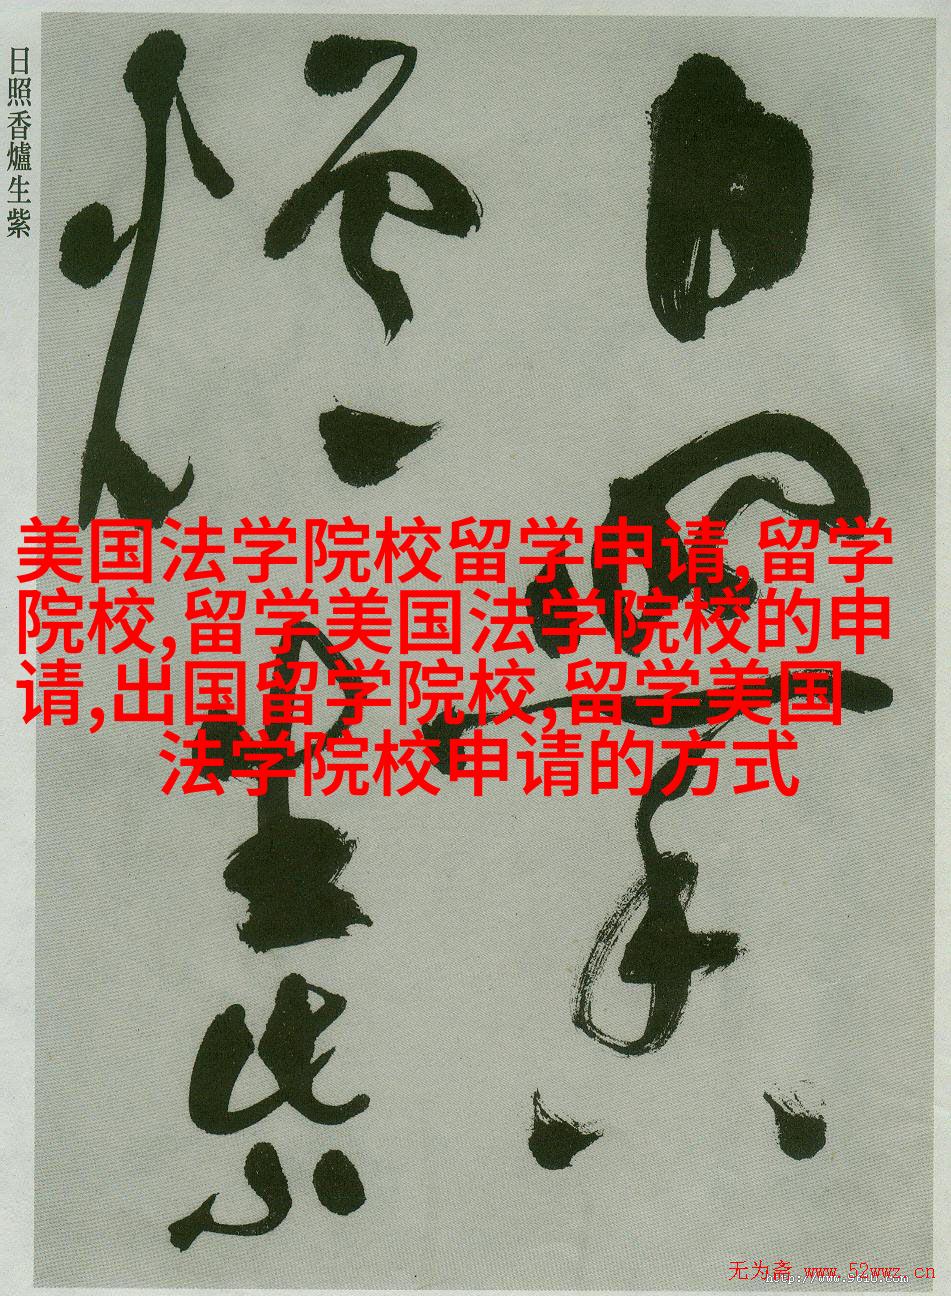 日照香爐生紫
日照香
爐生紫
美国法学院校留学申请,留学
院校,留学美国法学院校的申
请,出国留学院校,留学美国
法学院校申请的方式
无为斋 www.52wwz.cn
http://www.9610.com